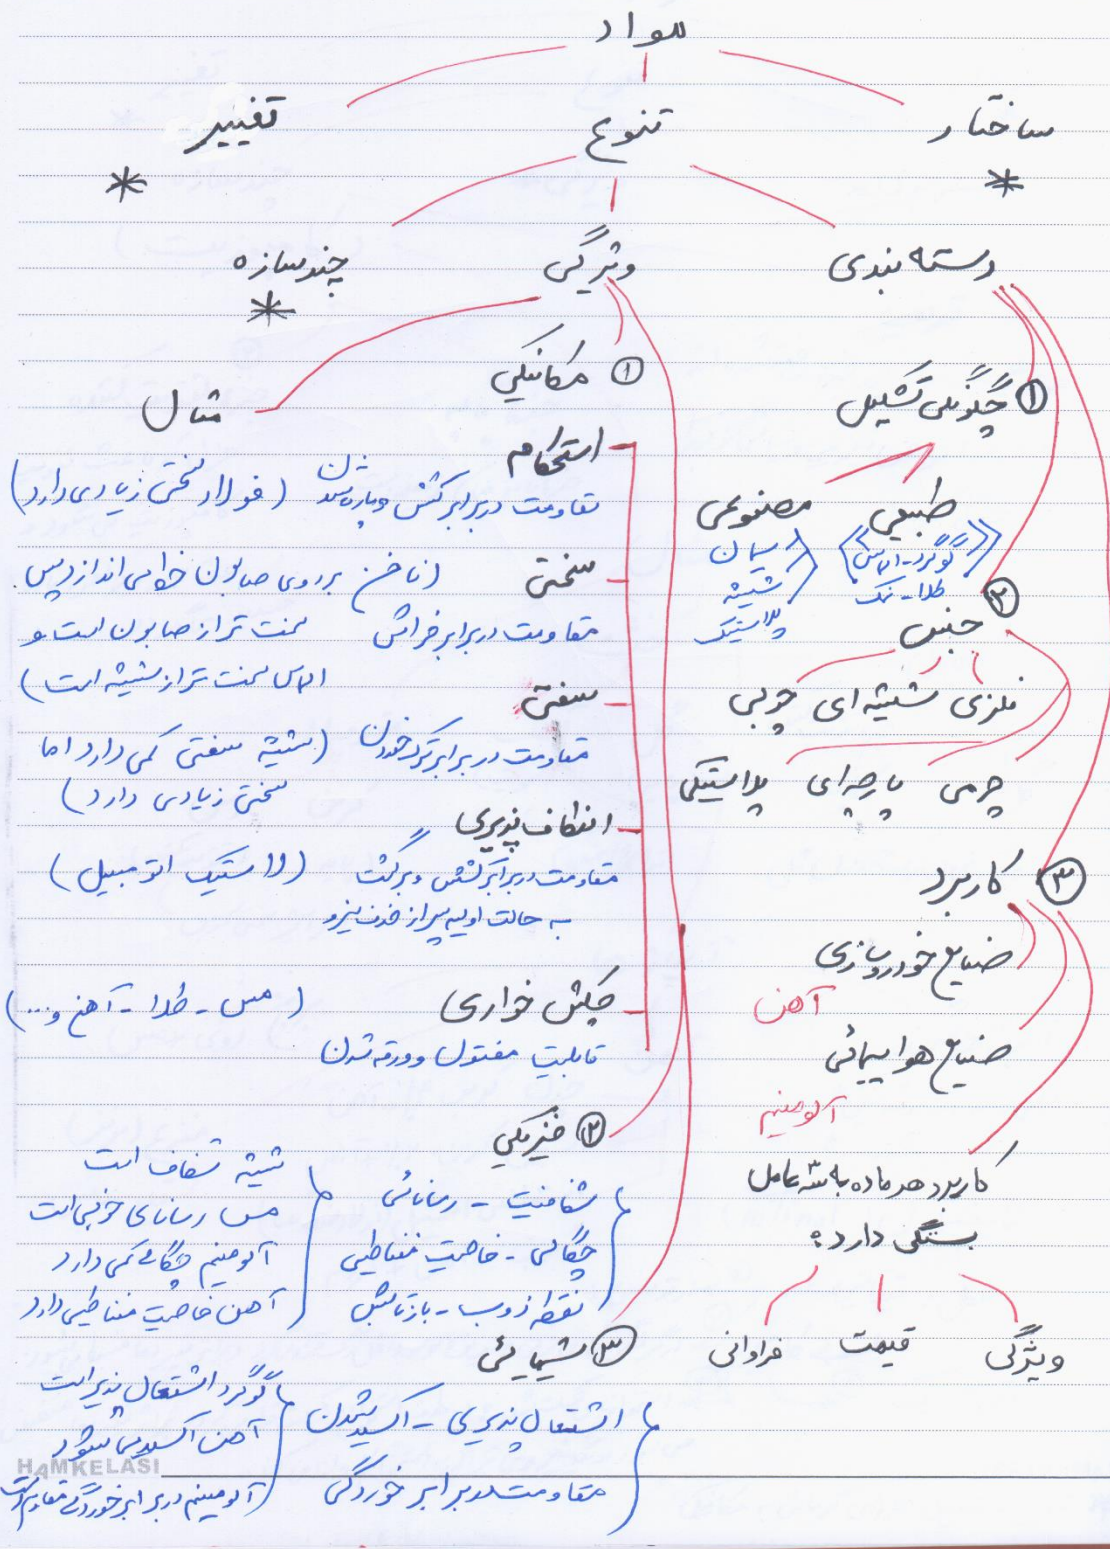 مواد
ساختار تنوع تغییر
* *
دسته بندی ویژگی چندسازه
*
① چگونگی تشکیل
طبیعی مصنوعی
گوگرد - الماس
طلا - نمک
سیمان
شیشه
پلاستیک
② جنس
فلزی شیشه ای چوبی
چرمی پارچه ای پلاستیکی
③ کاربرد
صنایع خودروسازی
آهن
صنایع هواپیمائی
آلومینیم
کاربرد هر ماده به ۳ عامل
بستگی دارد:
ویژگی قیمت فراوانی
① مکانیکی
مثال
استحکام
مقاومت در برابر کشش و پاره شدن (فولاد سختی زیادی دارد)
سختی (ناخن بر روی صابون خط می اندازد پس
مقاومت در برابر خراش سخت تر از صابون است و
الماس سخت تر از شیشه است)
سفتی
مقاومت در برابر ترک خوردن (شیشه سفتی کمی دارد اما
سختی زیادی دارد)
انعطاف پذیری
مقاومت در برابر کشش و برگشت (لاستیک اتومبیل)
به حالت اولیه پس از حذف نیرو
چکش خواری (مس - طلا - آهن و...)
قابلیت مفتول و ورقه شدن
② فیزیکی
شفافیت - رسانائی
چگالی - خاصیت مغناطیسی
نقطه ذوب - بازتابش
شیشه شفاف است
مس رسانای خوبی است
آلومینیم چگالی کمی دارد
آهن خاصیت مغناطیسی دارد
③ شیمیائی
اشتعال پذیری - اکسید شدن
مقاومت در برابر خوردگی
گوگرد اشتعال پذیر است
آهن اکسید می شود
آلومینیم در برابر خوردگی مقاوم است
HAMKELASI